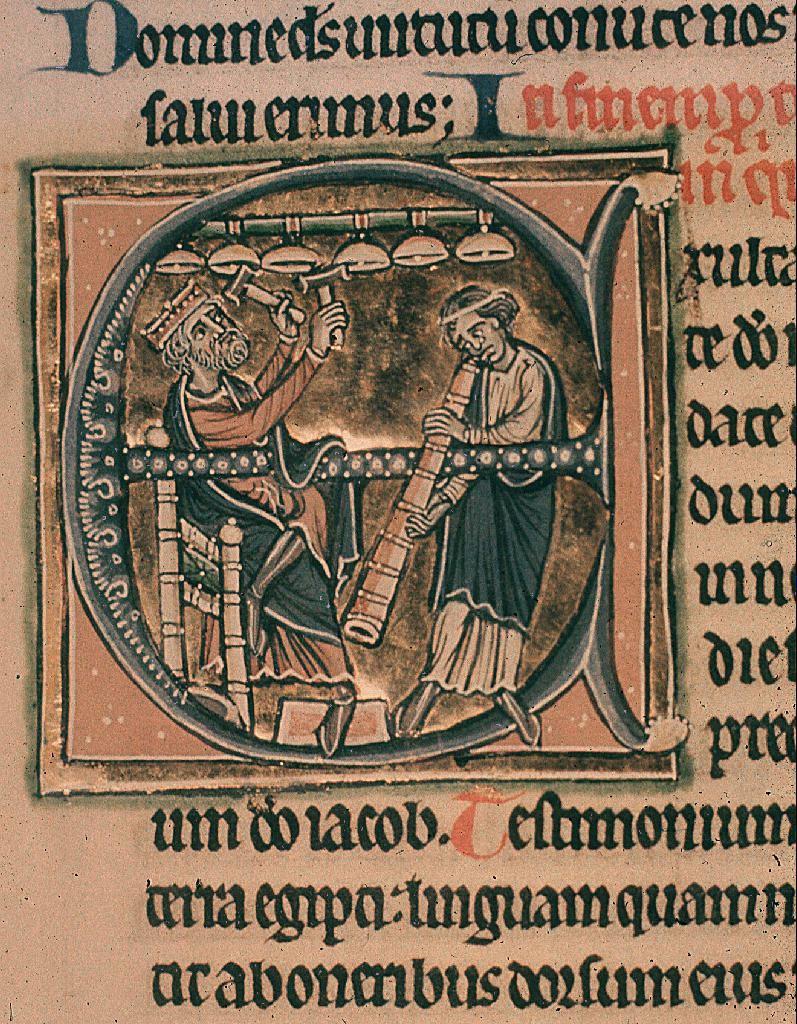 Domine ds uirtutu conuite nos
salui erimus; In finem p t
in qu
Exulta
te do
date
dum
die
prec
um do iacob. Testimonium
terra egipti: linguam quam n
tit ab oneribus dorsum eius